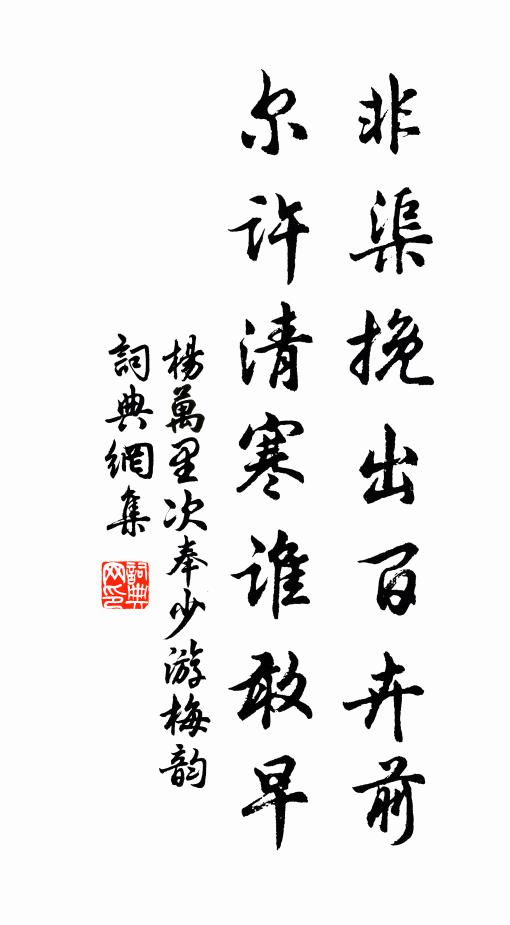 非渠挽出百卉前
尔许清寒谁敢早
楊萬里次奉少游梅韵
詞典網集
詞典
网印